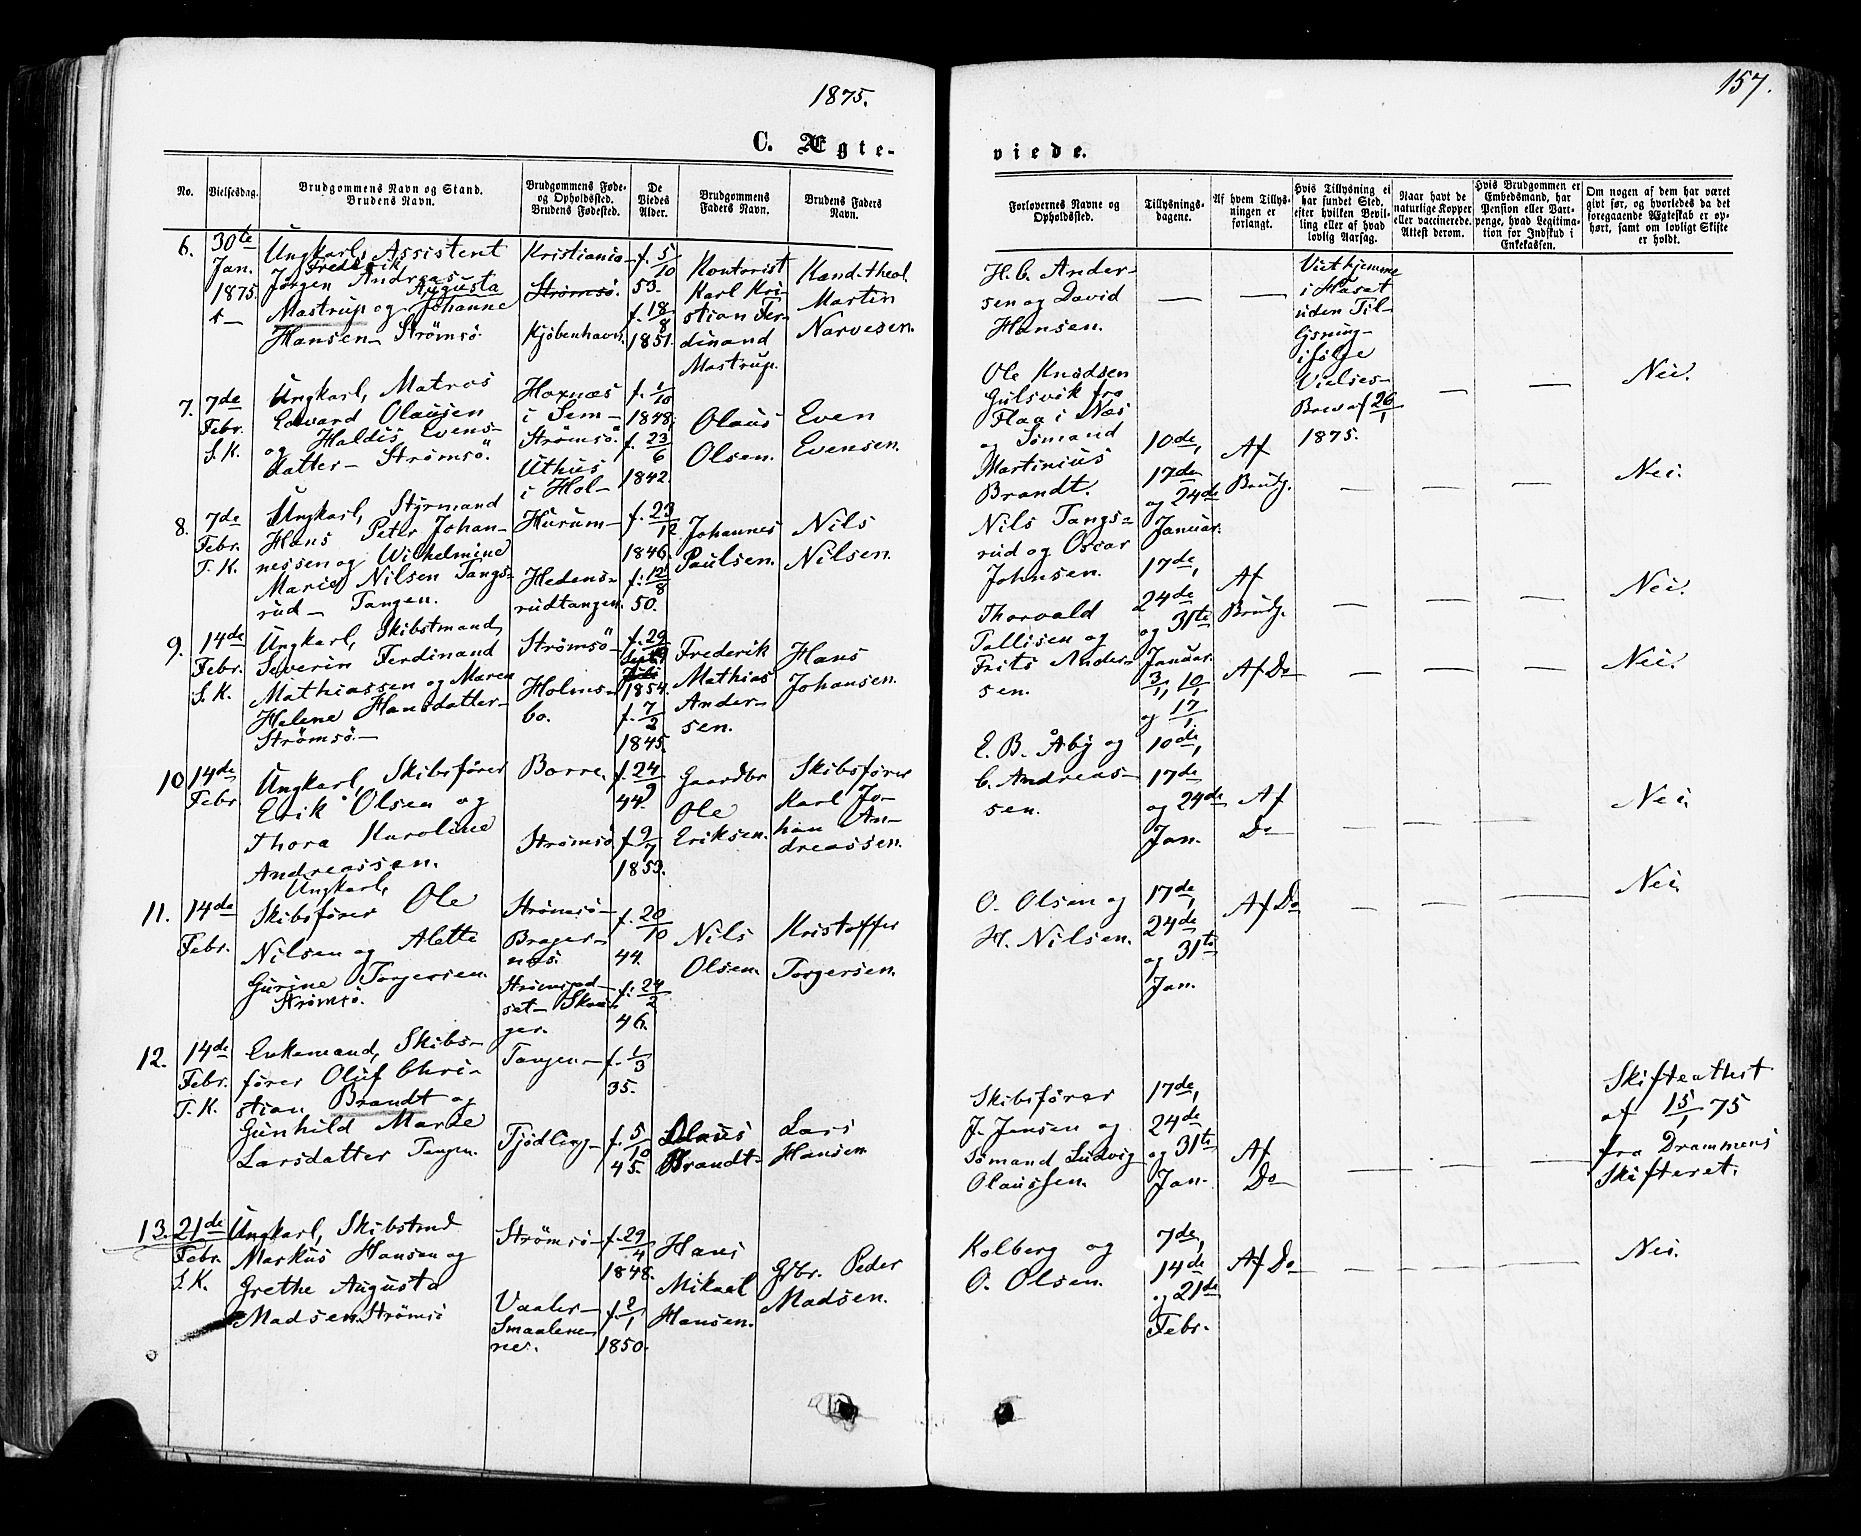 1875.
157.
C. Ægte-
viede.
No.
Vielsesdag.
Brudgommens Navn og Stand.
Brudens Navn.
Brudgommens Føde-
og Opholdssted.
Brudens Fødested.
De
Viedes
Alder.
Brudgommens
Faders Navn.
Brudens Faders
Navn.
Forlovernes Navne og
Opholdssted.
Tillysnings-
dagene.
Af hvem Tillys-
ningen er
forlangt.
Hvis Tillysning ei
har fundet Sted,
efter hvilken Bevil-
ling eller af hvad
lovlig Aarsag.
Naar havt de
naturlige Kopper
eller vaccinerede.
Attest derom.
Hvis Brudgommen er
Embedsmand, har
Pension eller Vart-
penge, hvad Legitima-
tion for Indskud i
Enkekassen.
Om nogen af dem har været
givt før, og hvorledes da det
foregaaende Ægteskab er op-
hørt, samt om lovligt Skifte
er holdt.
6.
30te
Jan.
1875.
Ungkarl, Assistent
Fredrik
Jørgen Andreas
Augusta
Mastrup og Johanne
Hansen – Strømsö.
Kristiania –
Strømsö.
Kjöbenhavn.
f. 5/10
53.
f. 18/8
1851.
Kontorist
Karl Kri-
stian Fer-
dinand
Mastrup.
Kand. theol.
Martin
Narvesen.
H. C. Ander-
sen og David
Hansen.
—
—
Viet hjemme
i Huset
uden Til-
lysning –
ifölge
Vielses-
Brev af 26/1
1875.
7.
7de
Febr.
S. K.
Ungkarl, Matros
Edvard Olausen
og Haldis Evens-
datter – Strømsö.
Haxnæs
i Sem –
Strømsö.
Uthus
i Hol –
f. 1/10
1848.
f. 23/6
1842.
Olaus
Olsen.
Even
Evensen.
Ole Knudsen
Gulsvik fra
Flaa i Næs
og Sømand
Martinius
Brandt.
10de,
17de
og 24de
Januar.
Af
Brudg.
—
—
Nei.
8.
7de
Febr.
T. K.
Ungkarl, Styrmand
Hans Peter Johan-
nessen og Wilhelmine
Marie Nilsen Tangs-
rud – Tangen.
Hurum –
Hedens-
rudtangen.
f. 23/12
1846.
f. 12/8
50.
Johannes
Paulsen.
Nils
Nilsen.
Nils Tangs-
rud og Oscar
Johnsen.
17de,
24de
og 31te
Januar.
Af
Brudg.
—
—
—
Nei.
9.
14de
Febr.
S. K.
Ungkarl, Skibstmand,
Severin Ferdinand
Mathiassen og Maren
Helene Hansdatter –
Strømsö. –
Strømsö
Holms-
bo.
f. 29
Septbr
1854.
f. 7/2
1845.
Frederik
Mathias
Ander-
sen.
Hans
Johansen.
Thorvald
Tallisen og
Frits Ander-
sen.
3/1, 10/1
og 17/1.
Af Do
—
—
—
Nei.
10
14de
Febr.
Ungkarl, Skibsfører
Erik Olsen og
Thora Karoline
Andreassen.
Borre.
Strømsö
f. 24/9
44.
f. 9/7
1853.
Gaardbr.
Ole
Eriksen.
Skibsfører
Karl Jo-
han An-
dreassen.
E. B. Åby og
C. Andreas-
sen.
10de,
17de
og 24de
Jan.
Af
Do
—
—
—
Nei.
11.
14de
Febr.
Ungkarl,
Skibsfører Ole
Nilsen og Alette
Gurine Torgersen.
Strømsö.
Strømsö –
Brager-
næs.
Strömsgod-
set – Skau-
ger.
f. 20/10
44.
f. 24/2
46.
Nils
Olsen.
Kristoffer
Torgersen.
O. Olsen og
H. Nilsen.
17de,
24de
og 31te
Jan.
Af Do
—
—
—
Nei.
12.
14de
Febr.
T. K.
Enkemand, Skibs-
fører Oluf Chri-
stian Brandt og
Gunhild Marie
Larsdatter Tangen.
Tangen –
Tjødling –
f. 1/3
35.
f. 5/10
45.
Olaus
Brandt –
Lars
Hansen
Skibsfører
J. Jensen og
Sømand Ludvig
Olaussen.
17de,
24de
og 31te
Jan.
Af
Do
—
—
—
Skifteattest
af 15/1 75
fra Drammens
Skifteret.
13.
21de
Febr.
S. K.
Ungkarl, Skibstmd
Markus Hansen og
Grethe Augusta
Madsen. Strømsö
Strømsö –
Vaaler –
Smaalene-
nes.
f. 29/4
1848.
f. 2/1
1850.
Hans
Mikael
Hansen.
Gbr. Peder
Madsen.
Kolberg og
O. Olsen.
7de,
14de
og 21de
Febr.
Af Do
—
—
—
Nei.